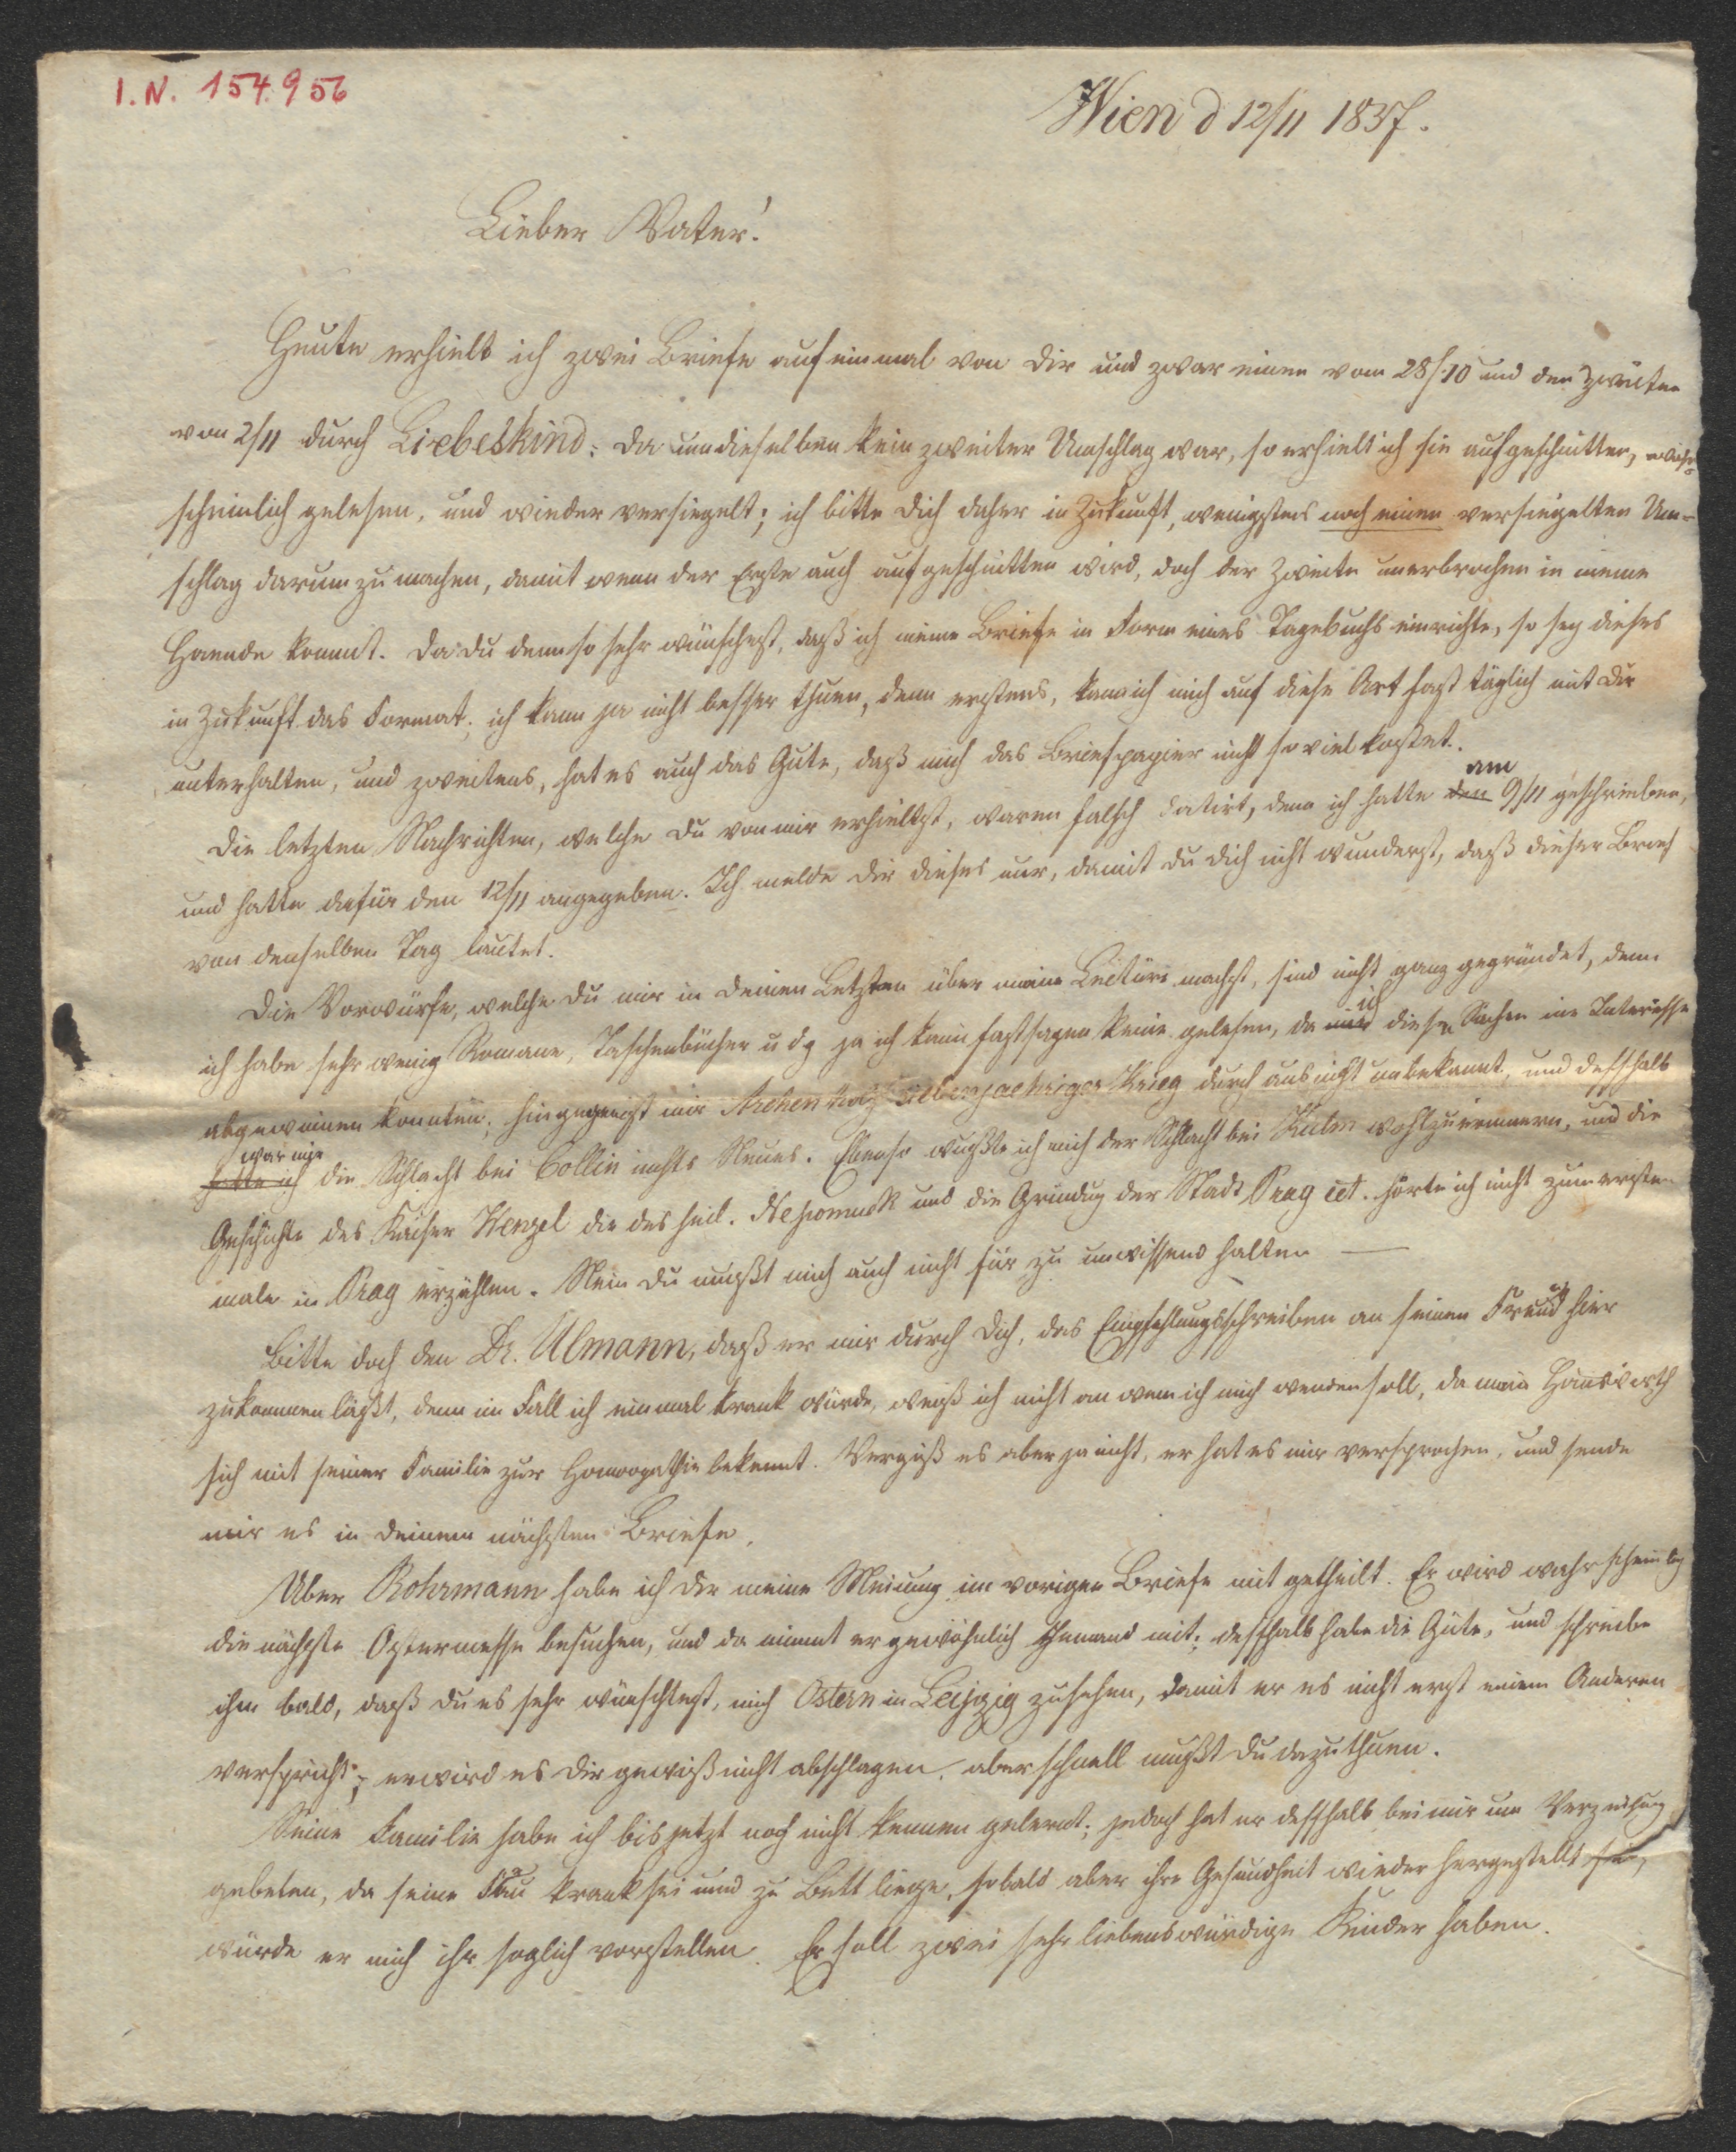 I.N. 154.956
Wien d 12/11 1837.
Lieber Vater!
Heute erhielt ich zwei Briefe auf einmal von Dir und zwar einen vom 28/10 und den zweiten
von 2/11 durch Liebeskind: da um dieselben kein zweiter Umschlag war, so erhielt ich sie aufgeschnitten, wahr-
scheinlich gelesen, und wieder versiegelt; ich bitte Dich daher in Zukunft, wenigstens noch einen versiegelten Um-
schlag darum zu machen, damit wenn der Erste auch aufgeschnitten wird, doch der Zweite unerbrochen in meine
Haende kommt. Da Du denn so sehr wünschest, daß ich meine Briefe in Form eines Tagebuchs einrichte, so sey dieses
in Zukunft das Format; ich kann ja nicht besser thuen, denn erstens, kann ich mich auf diese Art fast täglich mit Dir
unterhalten, und zweitens, hat es auch das Gute, daß mich das Briefpapier nicht so viel kostet.
Die letzten Nachrichten, welche Du von mir erhieltst, waren falsch datirt, denn ich hatte den am 9/11 geschrieben,
und hatte dafür den 12/11 angegeben. Ich melde Dir dieses nur, damit Du Dich nicht wunderst, daß dieser Brief
von denselben Tag lautet.
Die Vorwürfe, welche Du mir in Deinen Letzten über meine Lectüre machst, sind nicht ganz gegründet, denn
ich habe sehr wenig Romane, Taschenbücher u dg ja ich kann fast sagen keine gelesen, da mir ich diese Sachen nie Interesse
abgewinnen konnten; hingegen ist mir Archenholz siebenjaehriger Krieg durchaus nicht unbekannt, und deßhalb
hatte ich war mir die Schlacht bei Collin nichts Neues. Ebenso wußte ich mich der Schlacht bei Kulm wohl zu erinnern, und die
Geschichte des Kaiser Wenzel die des heil. Nepomuk und die Gründug der Stadt Prag ect. hörte ich nicht zum ersten
male in Prag erzählen. Nein Du mußt mich auch nicht für zu unwissend halten —
Bitte doch den Dr. Ulmann, daß er mir durch Dich, das Empfehlungsschreiben an seinen Freund hier
zukommen läßt, denn im Fall ich einmal krank würde, weiß ich nicht an wem ich mich wenden soll, da mein Hauswirth
sich mit seiner Familie zur Homoopathie bekennt. Vergiß es aber ja nicht, er hat es mir versprochen, und sende
mir es in Deinem nächsten Briefe.
Über Rohrmann habe ich Dir meine Meinung im vorigen Briefe mit getheilt. Er wird wahrscheinlig
die nächste Ostermesse besuchen, und da nimmt er gewöhnlich Jemand mit; deßhalb habe die Güte, und schreibe
ihm bald, daß Du es sehr wünschtest, mich Ostern in Leipzig zu sehen, damit er es nicht erst einem Anderen
verspricht; er wird es Dir gewiß nicht abschlagen, aber schnell mußt Du dazu thuen.
Seine Familie habe ich bis jetzt noch nicht kennen gelernt; jedoch hat er deßhalb bei mir um Verzeihung
gebeten, da seine Frau krank sei und zu Bett liege, sobald aber ihre Gesundheit wieder hergestellt sei,
würde er mich ihr soglich vorstellen. Er soll zwei sehr liebenswürdige Kinder haben.